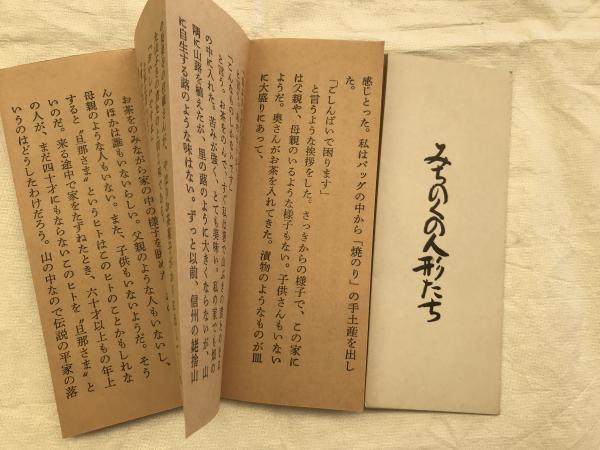 みちのくの人形たち
感じとった。私はバッグの中から「焼のり」の手土産を出し
た。
「ごしんぱいで困ります」
と言うような挨拶をした。さっきからの様子で、この家に
は父親や、母親のいるような様子もない。子供さんもいない
ようだ。奥さんがお茶を入れてきた。漬物のようなものが皿
に大盛りにあって、
と言う。お茶をのんで、すぐ私は
の中に入れた。苦みが強く、とても美味い。私の家でも畑の
隅に山蕗を植えたが、里の蕗のように大きくならないが、山
に自生する蕗のような味はない。ずっと以前、信州の姥捨山
お茶をのみながら家の中の様子を
んのほかは誰もいないらしい。父親のような人もいないし、
母親のような人もいない。また、子供もいないようだ。そう
すると〝旦那さま〟というヒトはこのヒトのことかもしれな
いのだ。来る途中で家をたずねたとき、六十才以上もの年上
の人が、まだ四十才にもならないこのヒトを〝旦那さま〟と
いうのはどうしたわけだろう。山の中なので伝説の平家の落